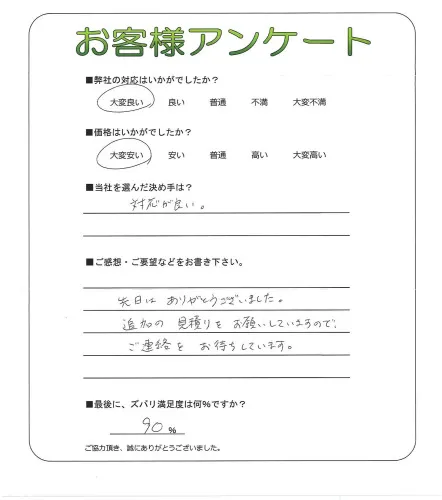 お客様アンケート
■弊社の対応はいかがでしたか?
大変良い 良い 普通 不満 大変不満
■価格はいかがでしたか?
大変安い 安い 普通 高い 大変高い
■当社を選んだ決め手は?
対応が良い。
■ご感想・ご要望などをお書き下さい。
先日は ありがとうございました。
追加の 見積りを お願いしていますので、
ご連絡を お待ちしています。
■最後に、ズバリ満足度は何%ですか?
90 %
ご協力頂き、誠にありがとうございました。